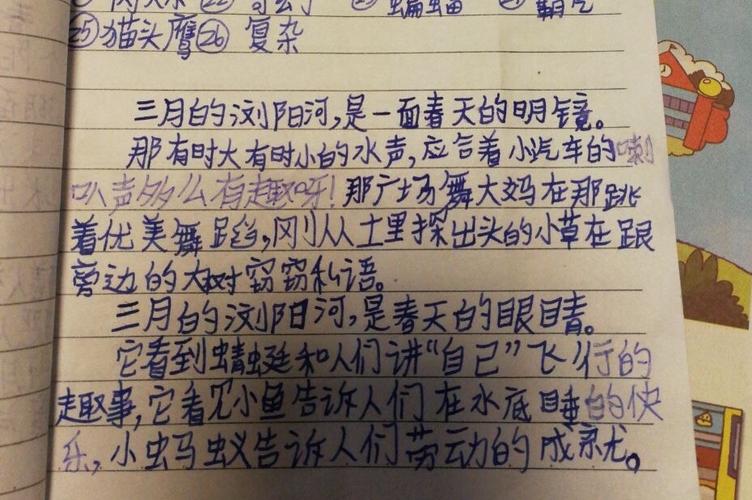 ㉕猫头鹰㉖ 复杂
三月的浏阳河,是一面春天的明镜。
那有时大有时小的水声,应合着小汽车的喇
叭声多么有趣呀!那广场舞大妈在那跳
着优美舞蹈,刚从土里探出头的小草在跟
旁边的大树窃窃私语。
三月的浏阳河,是春天的眼睛。
它看到蜻蜓和人们讲“自己”飞行的
趣事,它看见小鱼告诉人们在水底睡的快
乐,小虫马蚁告诉人们劳动的成就。